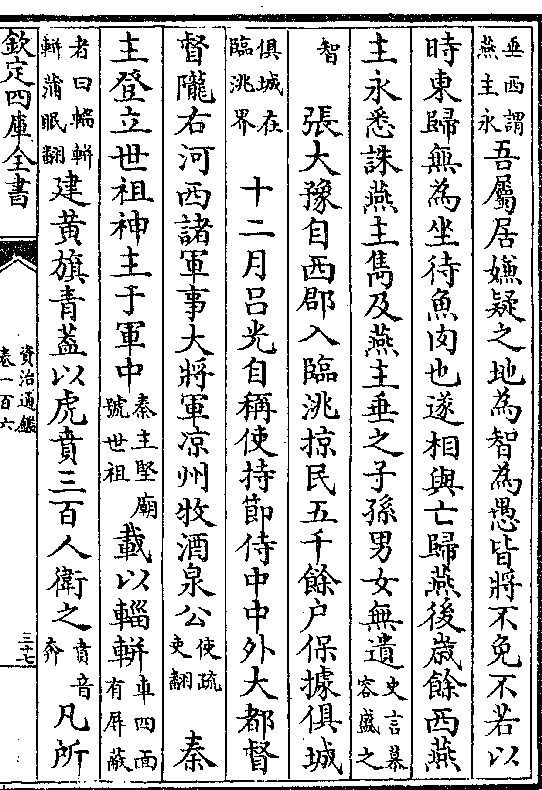 垂西謂燕主永吾屬居嫌疑之地為智為愚皆將不免不若以
時東歸無為坐待魚肉也遂相與亡歸燕後歲餘西燕
主永悉誅燕主雋及燕主垂之子孫男女無遺史言慕容盛之
智 張大豫自西郡入臨洮掠民五千餘户保據俱城
俱城在臨洮界 十二月吕光自稱使持節侍中中外大都督
督隴右河西諸軍事大將軍凉州牧酒泉公使疏吏翻 秦
主登立世祖神主于軍中秦主堅廟號世祖載以輜軿車四面有屏蔽
者曰輜軿軿蒲眠翻建黄旗青葢以虎賁三百人衛之賁音奔凡所
欽定四庫全書
資治通鑑
卷一百六
三十七